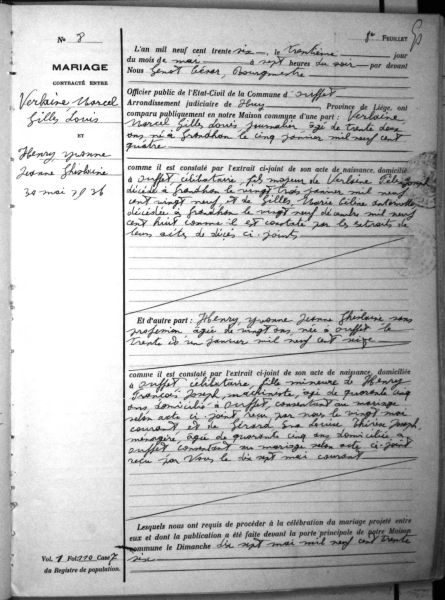 No 8
8e FEUILLET
MARIAGE
CONTRACTÉ ENTRE
Verlaine Marcel
Gilles Louis
ET
Henry Yvonne
Jeanne Ghislaine
30 mai 1936
L'an mil neuf cent trente six, le trentième jour
du mois de mai à sept heures du soir par devant
Nous Genot César, Bourgmestre
Officier public de l'Etat-Civil de la Commune d'Ouffet
Arrondissement judiciaire de Huy Province de Liége, ont
comparu publiquement en notre Maison commune d'une part : Verlaine
Marcel Gilles Louis journalier âgé de trente deux
ans né à Grandhan le cinq janvier mil neuf cent
quatre
comme il est constaté par l'extrait ci-joint de son acte de naissance, domicilié
à Ouffet célibataire, fils majeur de Verlaine Félix Joseph
décédé à Grandhan le vingt trois janvier mil neuf
cent vingt neuf et de Gilles Marie Céline Antoinette
décédée à Grandhan le vingt neuf décembre mil neuf
cent huit comme il est constaté par les extraits de
leurs actes de décès ci-joints
Et d'autre part : Henry Yvonne Jeanne Ghislaine sans
profession âgée de vingt ans née à Ouffet le
trente et un janvier mil neuf cent seize
comme il est constaté par l'extrait ci-joint de son acte de naissance, domiciliée
à Ouffet célibataire, fille mineure de Henry
François Joseph, machiniste, âgé de quarante cinq
ans domicilié à Ouffet consentant au mariage
selon acte ci-joint reçu par nous le vingt mai
courant et de Gérard Louise Thérèse Joseph
ménagère, âgée de quarante cinq ans domiciliée à
Ouffet consentant au mariage selon acte ci-joint
reçu par Nous le dix sept mai courant
Lesquels nous ont requis de procéder à la célébration du mariage projeté entre
eux et dont la publication a été faite devant la porte principale de notre Maison
commune le Dimanche dix sept mai mil neuf cent trente
six
Vol. 1 Fol. 110 Case 7
du Registre de population.